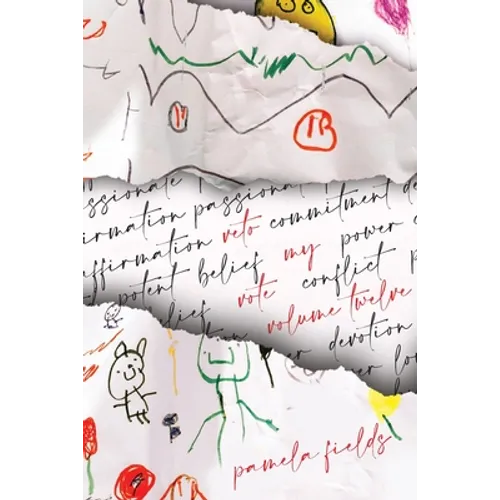 passionate
affirmation passionat
affirmation veto commitment de
potent belief my power
belief vote conflict p
volume twelve
devotion
lo
pamela fields